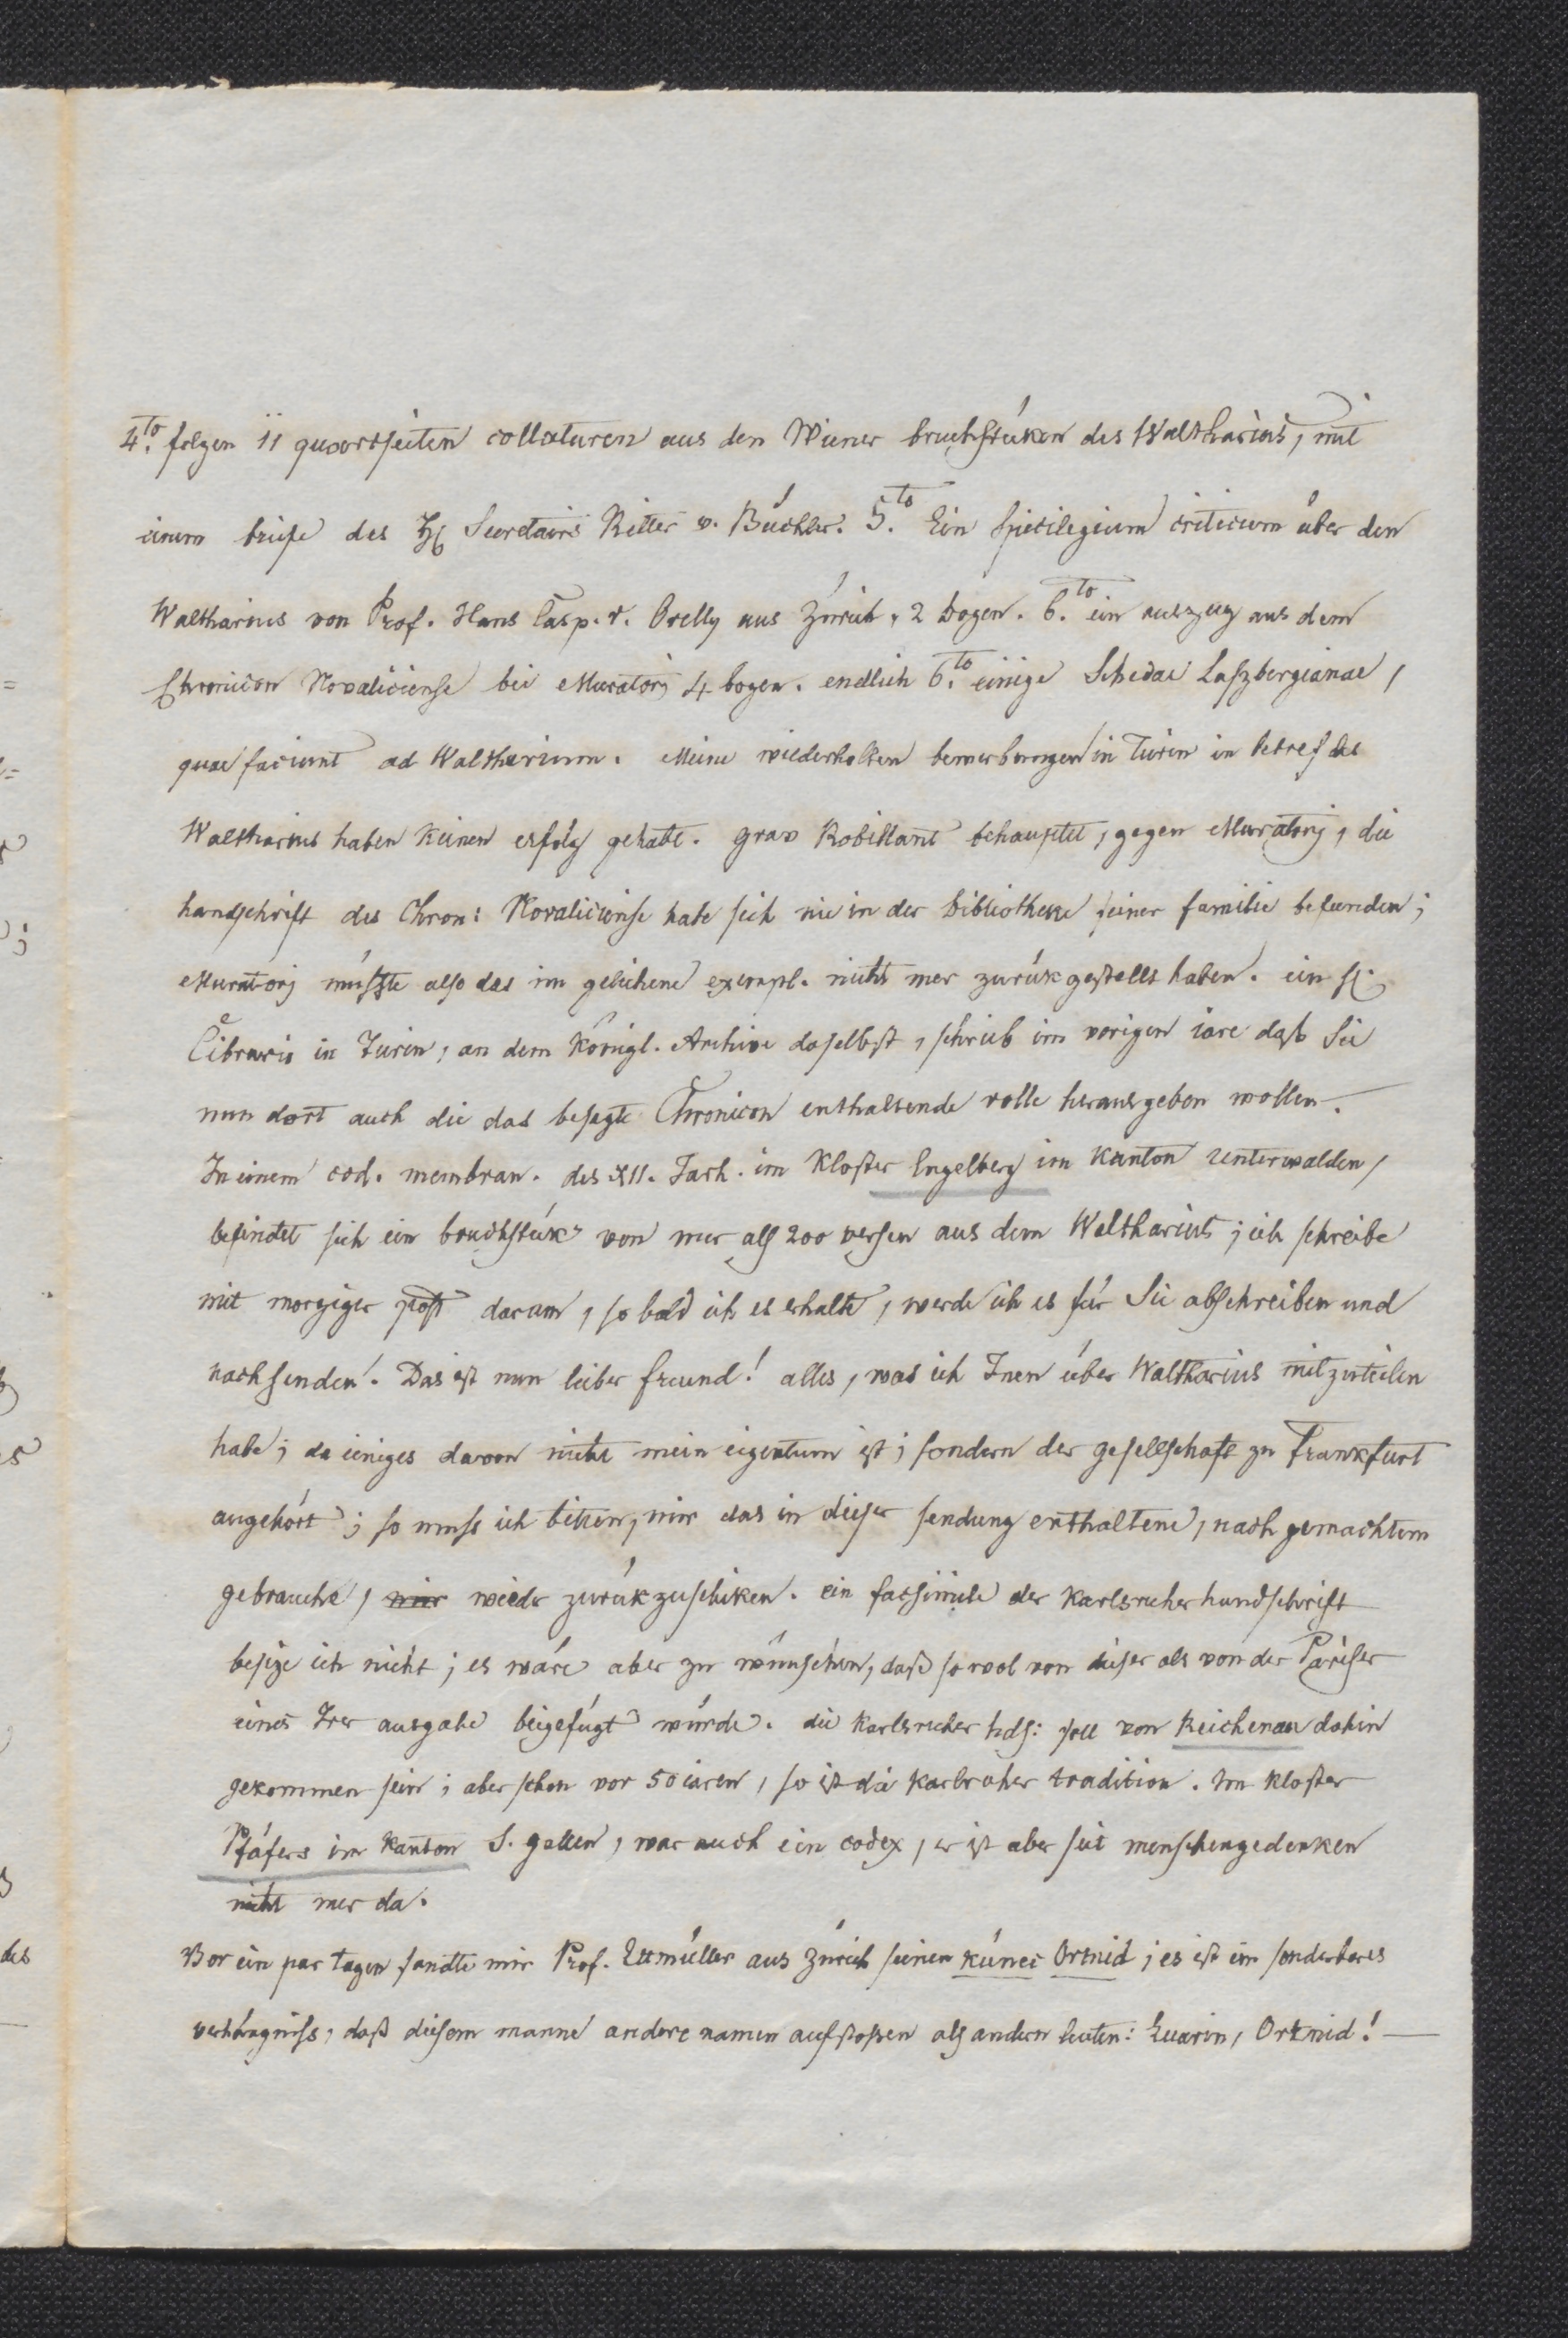 4.to folgen 11 quartseiten collaturen aus den Wiener bruchstüken des Waltharius, mit
einem briefe des H Secretairs Ritter v. Büchler. 5.to Ein Spicilegium criticum über den
Waltharius von Prof. Hans Casp. v. Orelly aus Zürich, 2 bogen. 6.to ein auszug aus dem
Chronicon Novaliciense bei Muratorj 4 bogen. endlich 6.to einige Schedae Laszbergianae,
quae faciunt ad Waltharium. Meine wiederholten bewerbungen in Turin in betref des
Waltharius haben keinen erfolg gehabt. grav Robillant behauptet, gegen Muratorj, die
handschrift des Chron: Novaliciense habe sich nie in der bibliotheke seiner familie befunden;
Muratorj müsste also das im geliehene exempl. nicht mer zurükgestellt haben. ein H.
Cibrario in Turin, an dem königl. Archive daselbst, schrieb im vorigen iare daß Sie
nun dort auch die das besagte Chronicon enthaltende rolle herausgeben wollen.
In einem cod. membran. des XII. Jarh. im Kloster Engelberg im Kanton Unterwalden,
befindet sich ein bruchstük von mer als 200 versen aus dem Waltharius; ich schreibe
mit morgiger post darum, so bald ich es erhalte, werde ich es für Sie abschreiben und
nachsenden. Das ist nun lieber freund! alles, was ich Inen über Waltharius mitzuteilen
habe; da einiges davon nicht mein eigentum ist; sondern der gesellschaft zu Frankfurt
angehört; so muss ich bitten, mir das in dieser sendung enthaltene, nach gemachtem
gebrauche, mir wieder zurükzuschiken. ein facsimile der karlsrucher handschrift
besize ich nicht; es wäre aber zu wünschen, daß so wol von dieser als von der Pariser
eines Irer ausgabe beigefügt würde. die Karlsrucher hds: soll von Reichenau dahin
gekommen sein; aber schon vor 50 iaren, so ist die karlsruher tradition. Im kloster
Pfäfers im Kanton S. gallen, war auch ein codex, er ist aber seit menschengedenken
nicht mer da.
Vor ein par tagen sandte mir Prof. Ettmüller aus Zürich seinen künec Ortnid; es ist ein sonderbares
verhängniss, daß diesem manne andere namen aufstoßen als andern leuten: Luarin, Ortnid! —